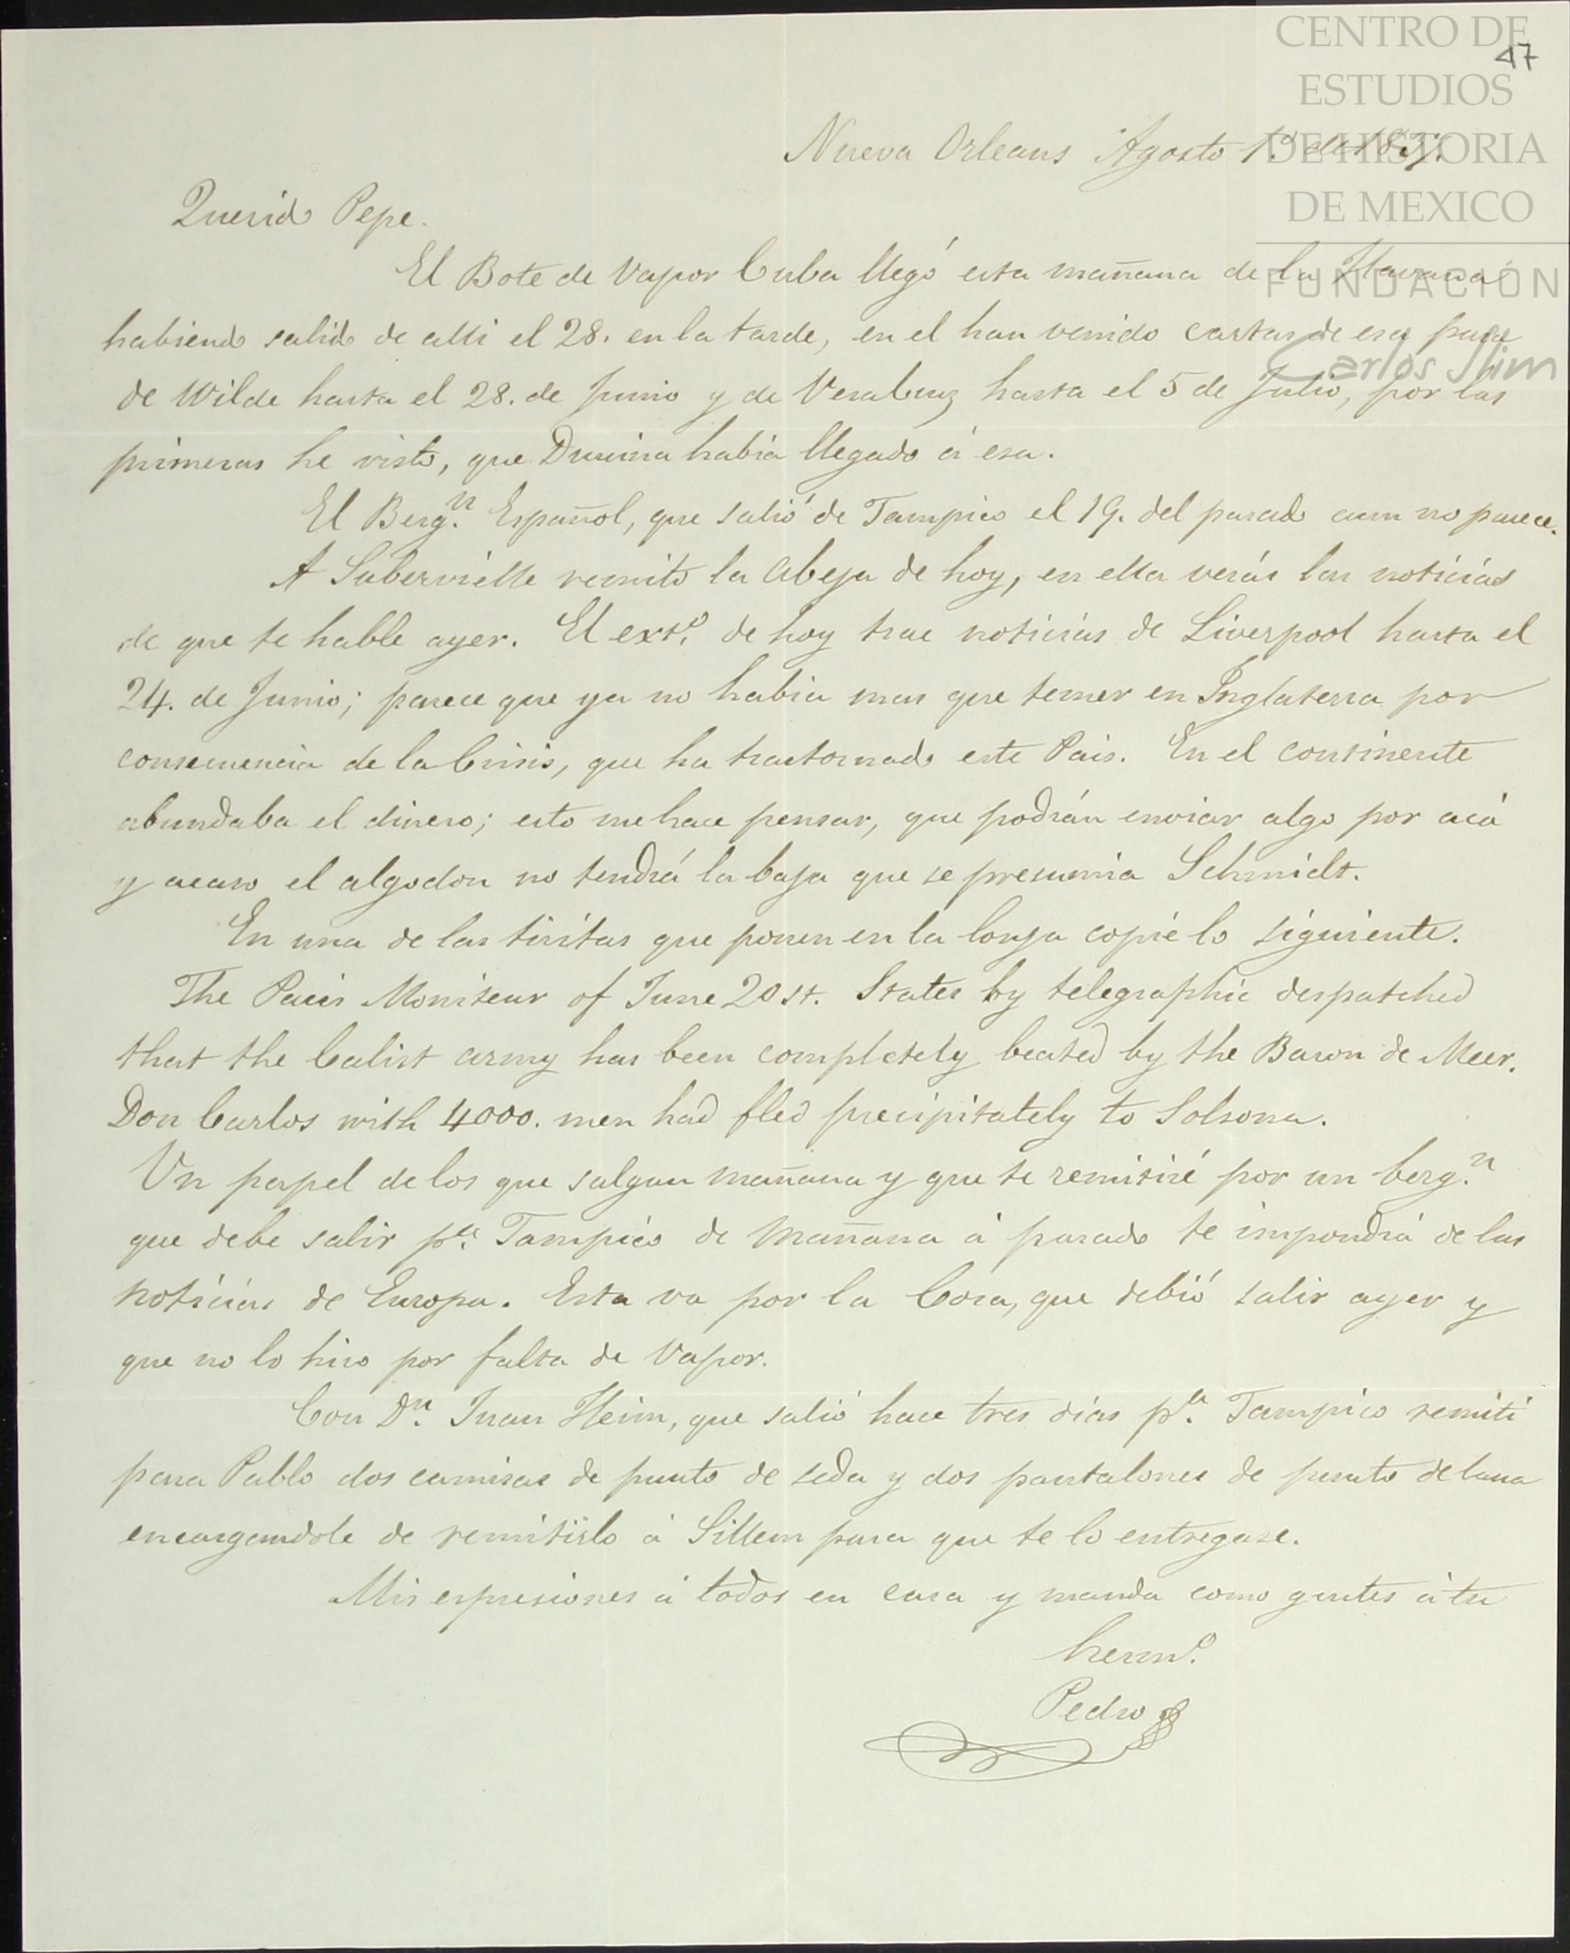 CENTRO DE
ESTUDIOS
DE HISTORIA
DE MEXICO
FUNDACIÓN
Carlos Slim
47
Nueva Orleans Agosto 1.º de 1837.
Querido Pepe.
El Bote de Vapor Cuba llegó esta mañana de la Havana
habiendo salido de alli el 28. en la tarde, en el han venido cartas de esa para
de Wilde hasta el 28. de Junio y de VeraCruz hasta el 5 de Julio, por las
primeras he visto, que Drusina habia llegado á esa.
El Berg.n Español, que salió de Tampico el 19. del pasado aun no parece.
A Subervielle remito la Abeja de hoy, en ella verás las noticias
de que te hable ayer. El ext.o de hoy trae noticias de Liverpool hasta el
24. de Junio; parece que ya no habia mas que temer en Inglaterra por
consecuencia de la Crisis, que ha trastornado este Pais. En el continente
abundaba el dinero; esto me hace pensar, que podrán enviar algo por acá
y acaso el algodon no tendrá la baja que se presumia Schmidt.
En una de las tiritas que ponen en la lonja copié lo siguiente.
The Paris Moniteur of June 20st. States by telegraphic despatched
that the Calist army has been completely beated by the Baron de Meer.
Don Carlos with 4000. men had fled precipitately to Solsona.
Un papel de los que salgan mañana y que te remitiré por un berg.n
que debe salir p.a Tampico de mañana á pasado te impondrá de las
noticias de Europa. Esta va por la Cora, que debió salir ayer y
que no lo hiso por falta de Vapor.
Con D.n Juan Heim, que salió hace tres dias p.a Tampico remiti
para Pablo dos camisas de punto de seda y dos pantalones de punto de lana
encargandole de remitirlo á Sillem para que te lo entregase.
Mis espresiones á todos en casa y manda como gustes á tu
herm.o
Pedro